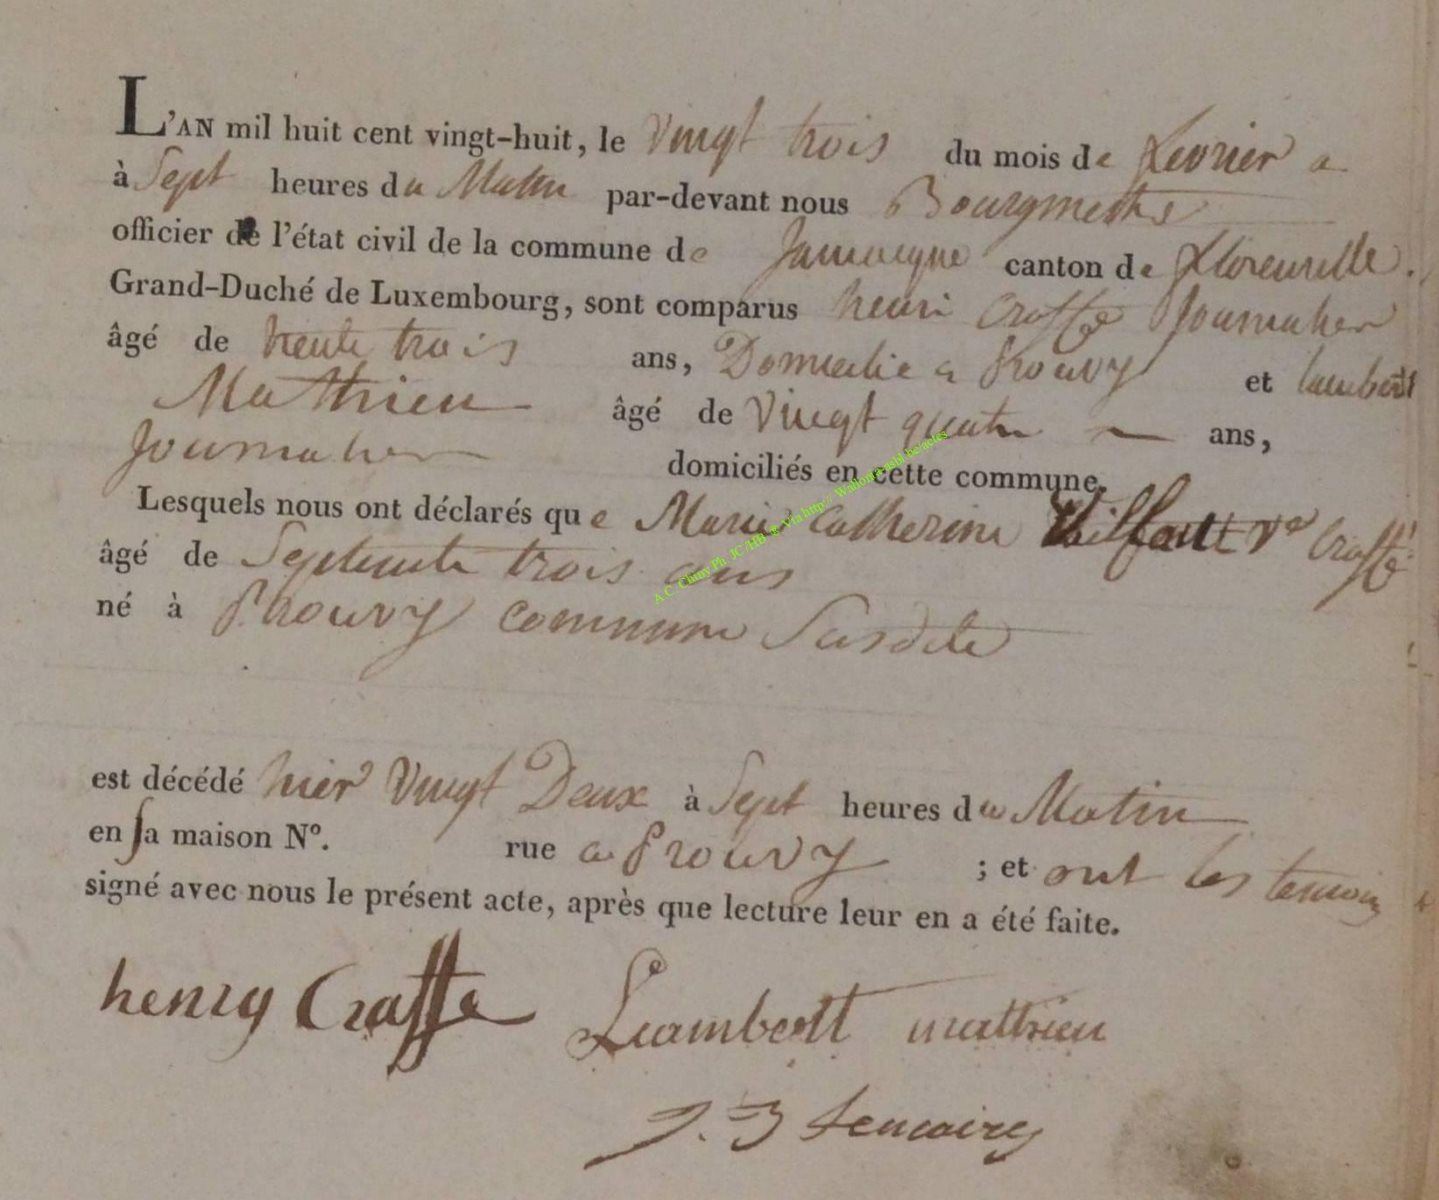 L'AN mil huit cent vingt-huit, le vingt trois du mois de fevrier a
à Sept heures du Matin par-devant nous Bourgmestre
officier de l'état civil de la commune de Jamoigne canton de florenville.
Grand-Duché de Luxembourg, sont comparus henri Craffe Journalier
âgé de trente trois ans, Domicilie a Prouvy et lambert
Mathieu âgé de vingt quatre ans,
Journalier domiciliés en cette commune.
Lesquels nous ont déclarés que Marie Catherine Ve Craffe
âgé de Septente trois ans
né à Prouvy commune Susdite
est décédé hier vingt Deux à Sept heures du Matin
en sa maison N°. rue a Prouvy ; et ont les temoins
signé avec nous le présent acte, après que lecture leur en a été faite.
henry Craffe Lambertt mathieu
J. B
A.C. Chiny Ph. JC /HB @ Via http:// Wallonia asbl be/actes